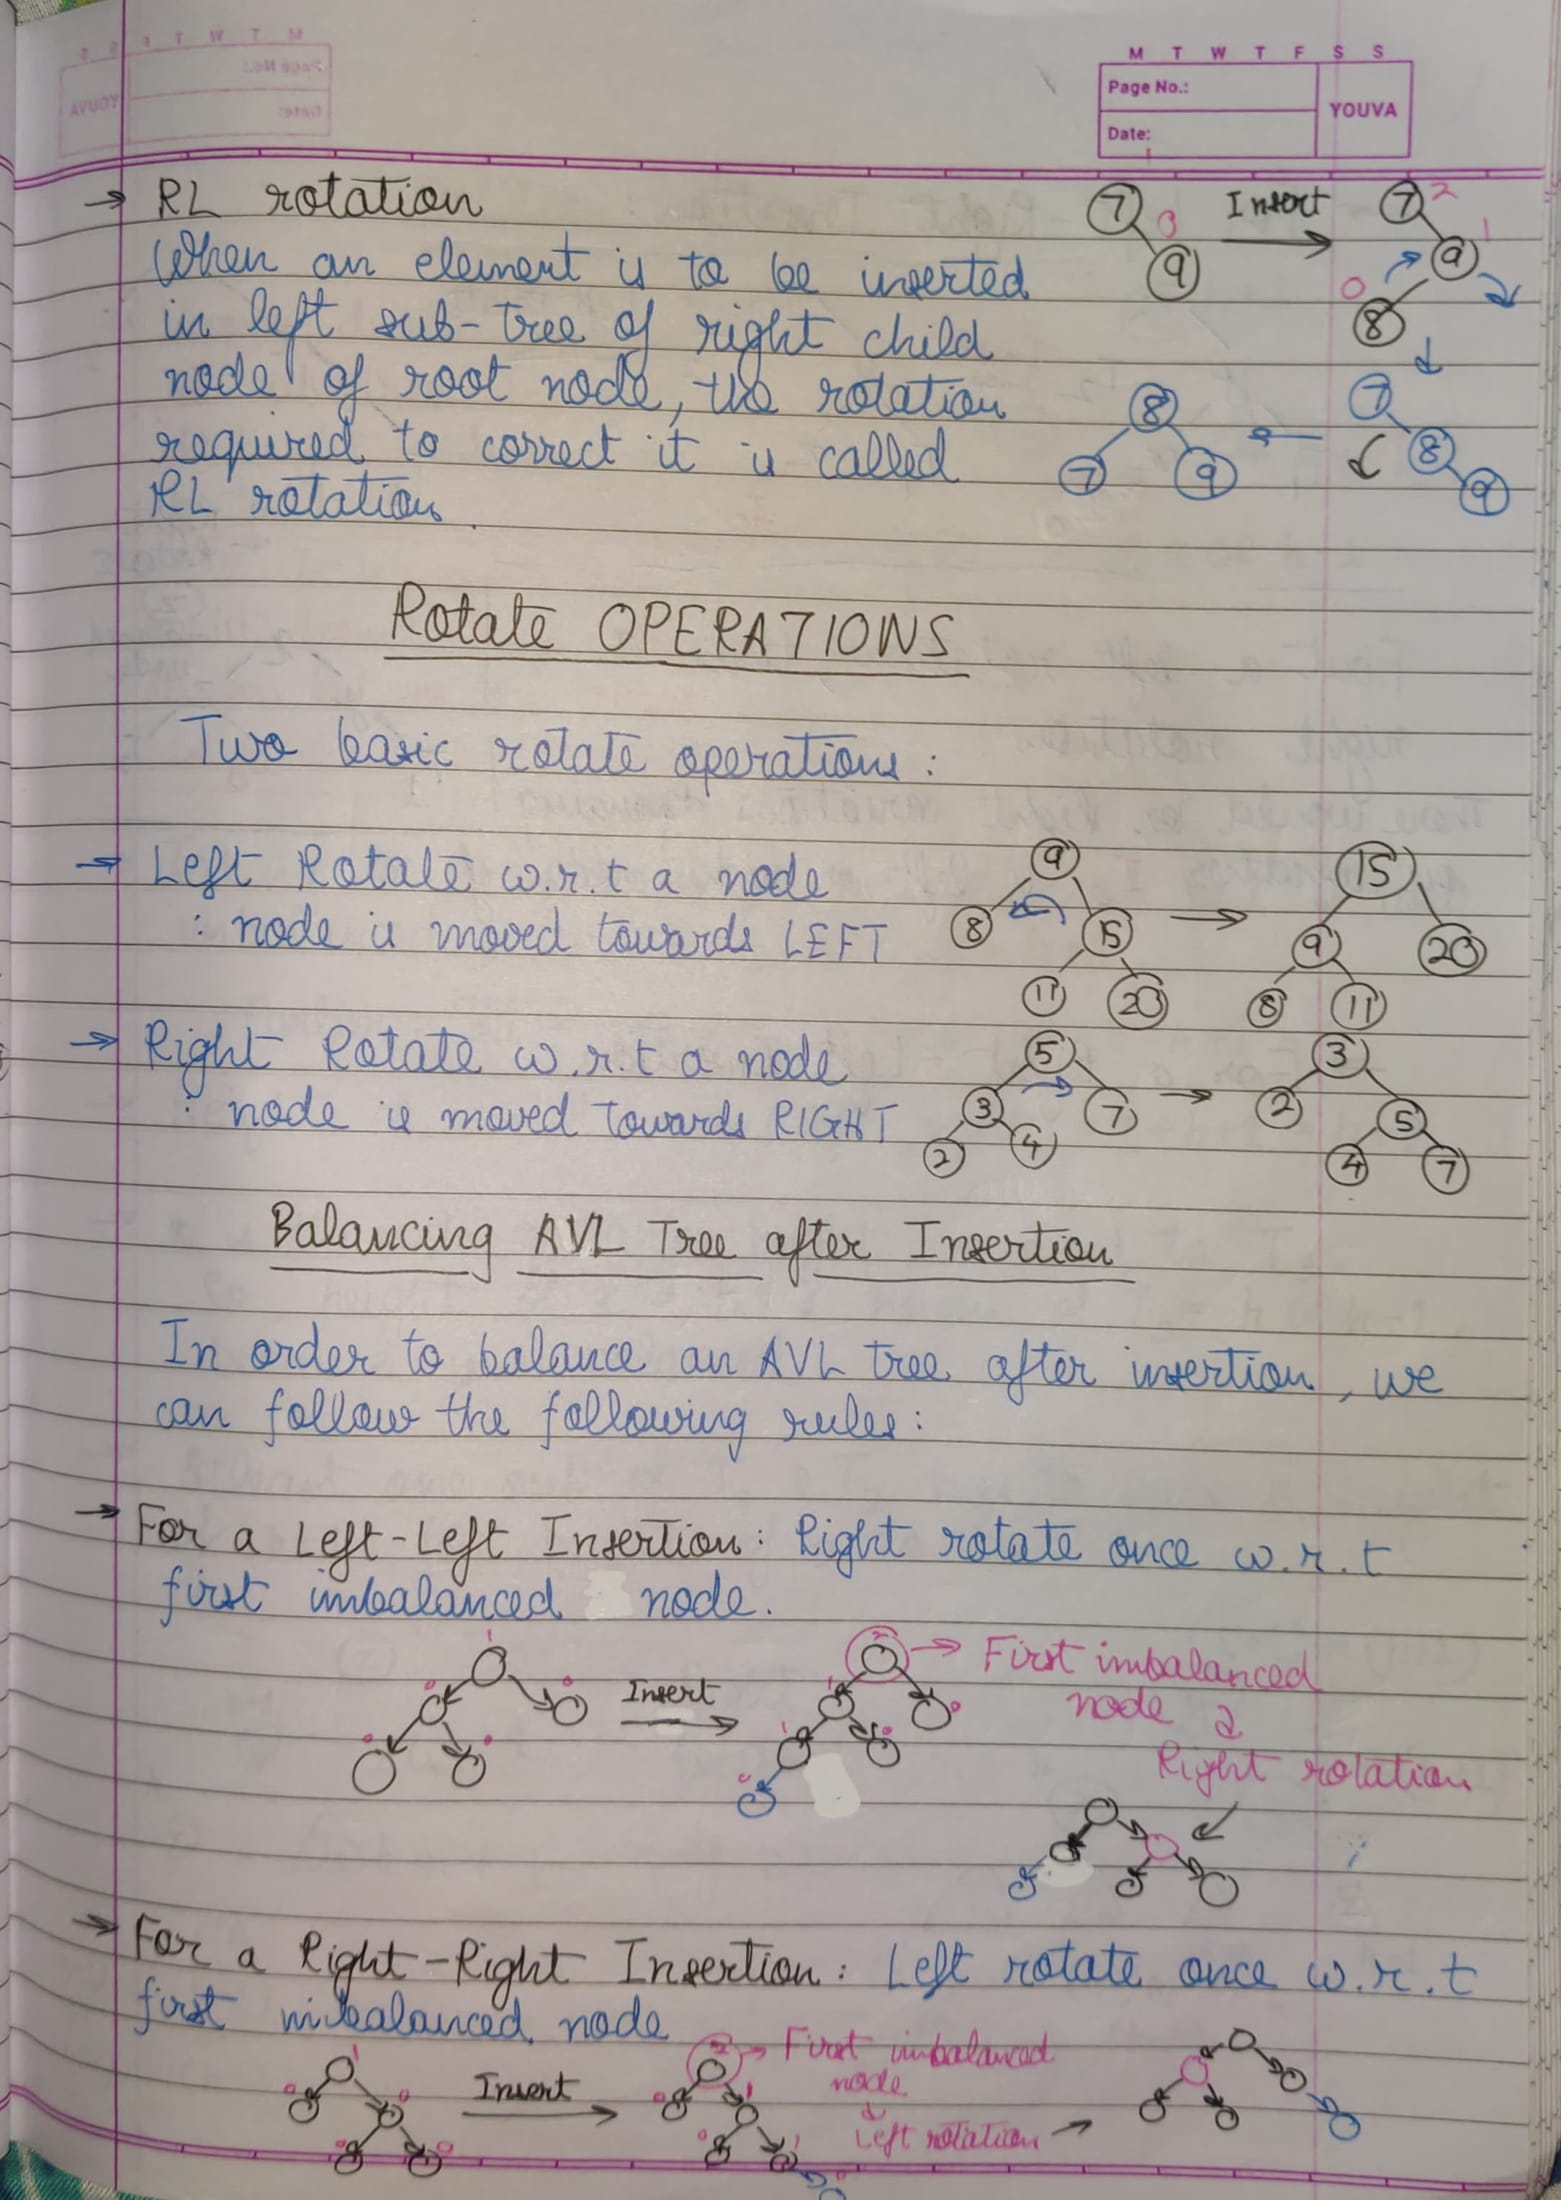 M T W T F S S
Page No.:
YOUVA
Date:
→ RL rotation
When an element is to be inserted
in left sub-tree of right child
node of root node, the rotation
required to correct it is called
RL rotation.
7 0 9 Insert 7 2 9 1 8 0
7 8 9
8 7 9
Rotate OPERATIONS
Two basic rotate operations:
→ Left Rotate w.r.t a node
: node is moved towards LEFT
9 8 15 11 20 → 15 9 20 8 11
→ Right Rotate w.r.t a node
: node is moved towards RIGHT
5 3 7 2 4 → 3 2 5 4 7
Balancing AVL Tree after Insertion
In order to balance an AVL tree after insertion, we
can follow the following rules:
→ For a Left-Left Insertion: Right rotate once w.r.t
first imbalanced node.
Insert
→ First imbalanced
node
Right rotation
→ For a Right-Right Insertion: Left rotate once w.r.t
first imbalanced node
Insert
→ First imbalanced
node
Left rotation →